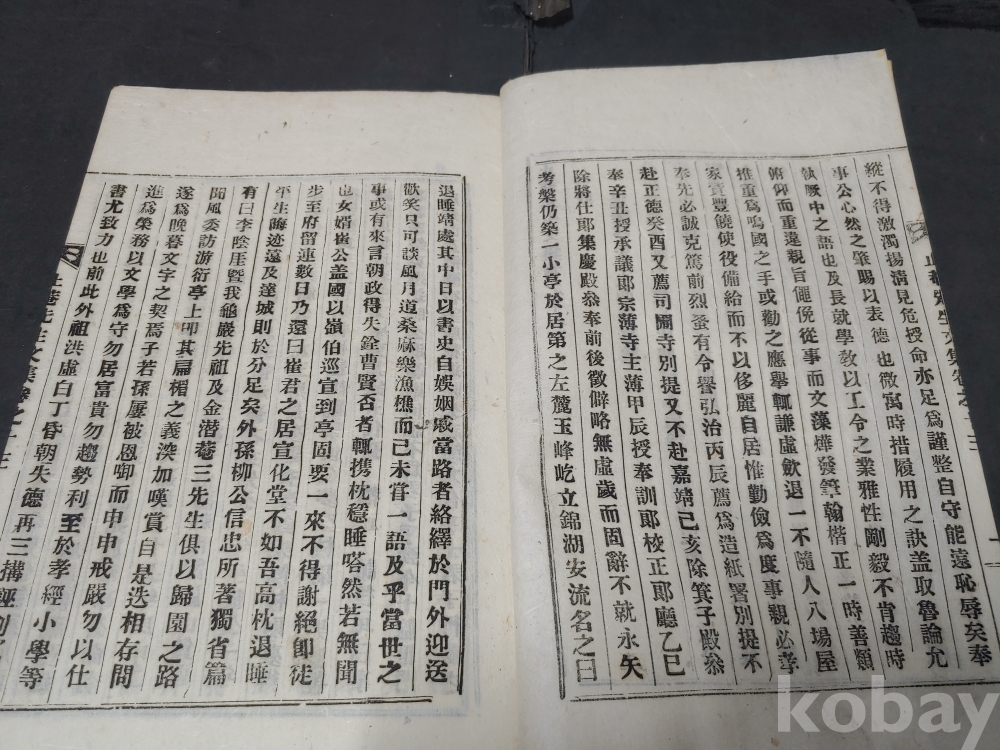 縱不得激濁揚清見危授命亦足爲謹整自守能遠恥辱矣奉
事公心然之肇賜以表德也微寓時措履用之訣盖取魯論允
執厥中之語也及長就學敎以工令之業雅性剛毅不肯趨時
俯仰而重違親旨僶俛從事而文藻燁發筆翰楷正一時善類
推重爲嗚國之手或勸之應擧輒謙虛歛退一不隨人入場屋
家貲豐饒使役備給而不以侈麗自居惟勤儉爲度事親必孝
奉先必誠克篤前烈蚤有令譽弘治丙辰薦爲造紙署別提不
赴正德癸酉又薦司圃寺別提又不赴嘉靖己亥除箕子殿叅
奉辛丑授承議郞宗薄寺主薄甲辰授奉訓郞校正郞廳乙巳
除將仕郞集慶殿叅奉前後徵僻略無虛歲而固辭不就永矢
考槃仍築一小亭於居第之左麓玉峰屹立錦湖安流名之曰
退睡靖處其中日以書史自娛姻戚當路者絡繹於門外迎送
歡笑只可談風月道桑麻樂漁樵而已未甞一語及乎當世之
事或有來言朝政得失銓曹賢否者輒携枕穩睡嗒然若無聞
也女婿崔公盖國以嶺伯巡宣到亭固要一來不得謝絕卽徒
步至府留連數日乃還曰崔君之居宣化堂不如吾高枕退睡
平生晦迹遠及達城則於分足矣外孫柳公信忠所著獨省篇
有曰李陰厓曁我龜巖先祖及金潜菴三先生俱以歸園之路
聞風委訪游衍亭上叩其扁楣之義深加嘆賞自是迭相存問
遂爲晩暮文字之契焉子若孫屢被恩啣而申申戒嚴勿以仕
進爲榮務以文學爲守勿居富貴勿趨勢利至於孝經小學等
書尤致力也前此外祖洪虛白丁昏朝失德再三搆誣
止菴先生文集卷之三